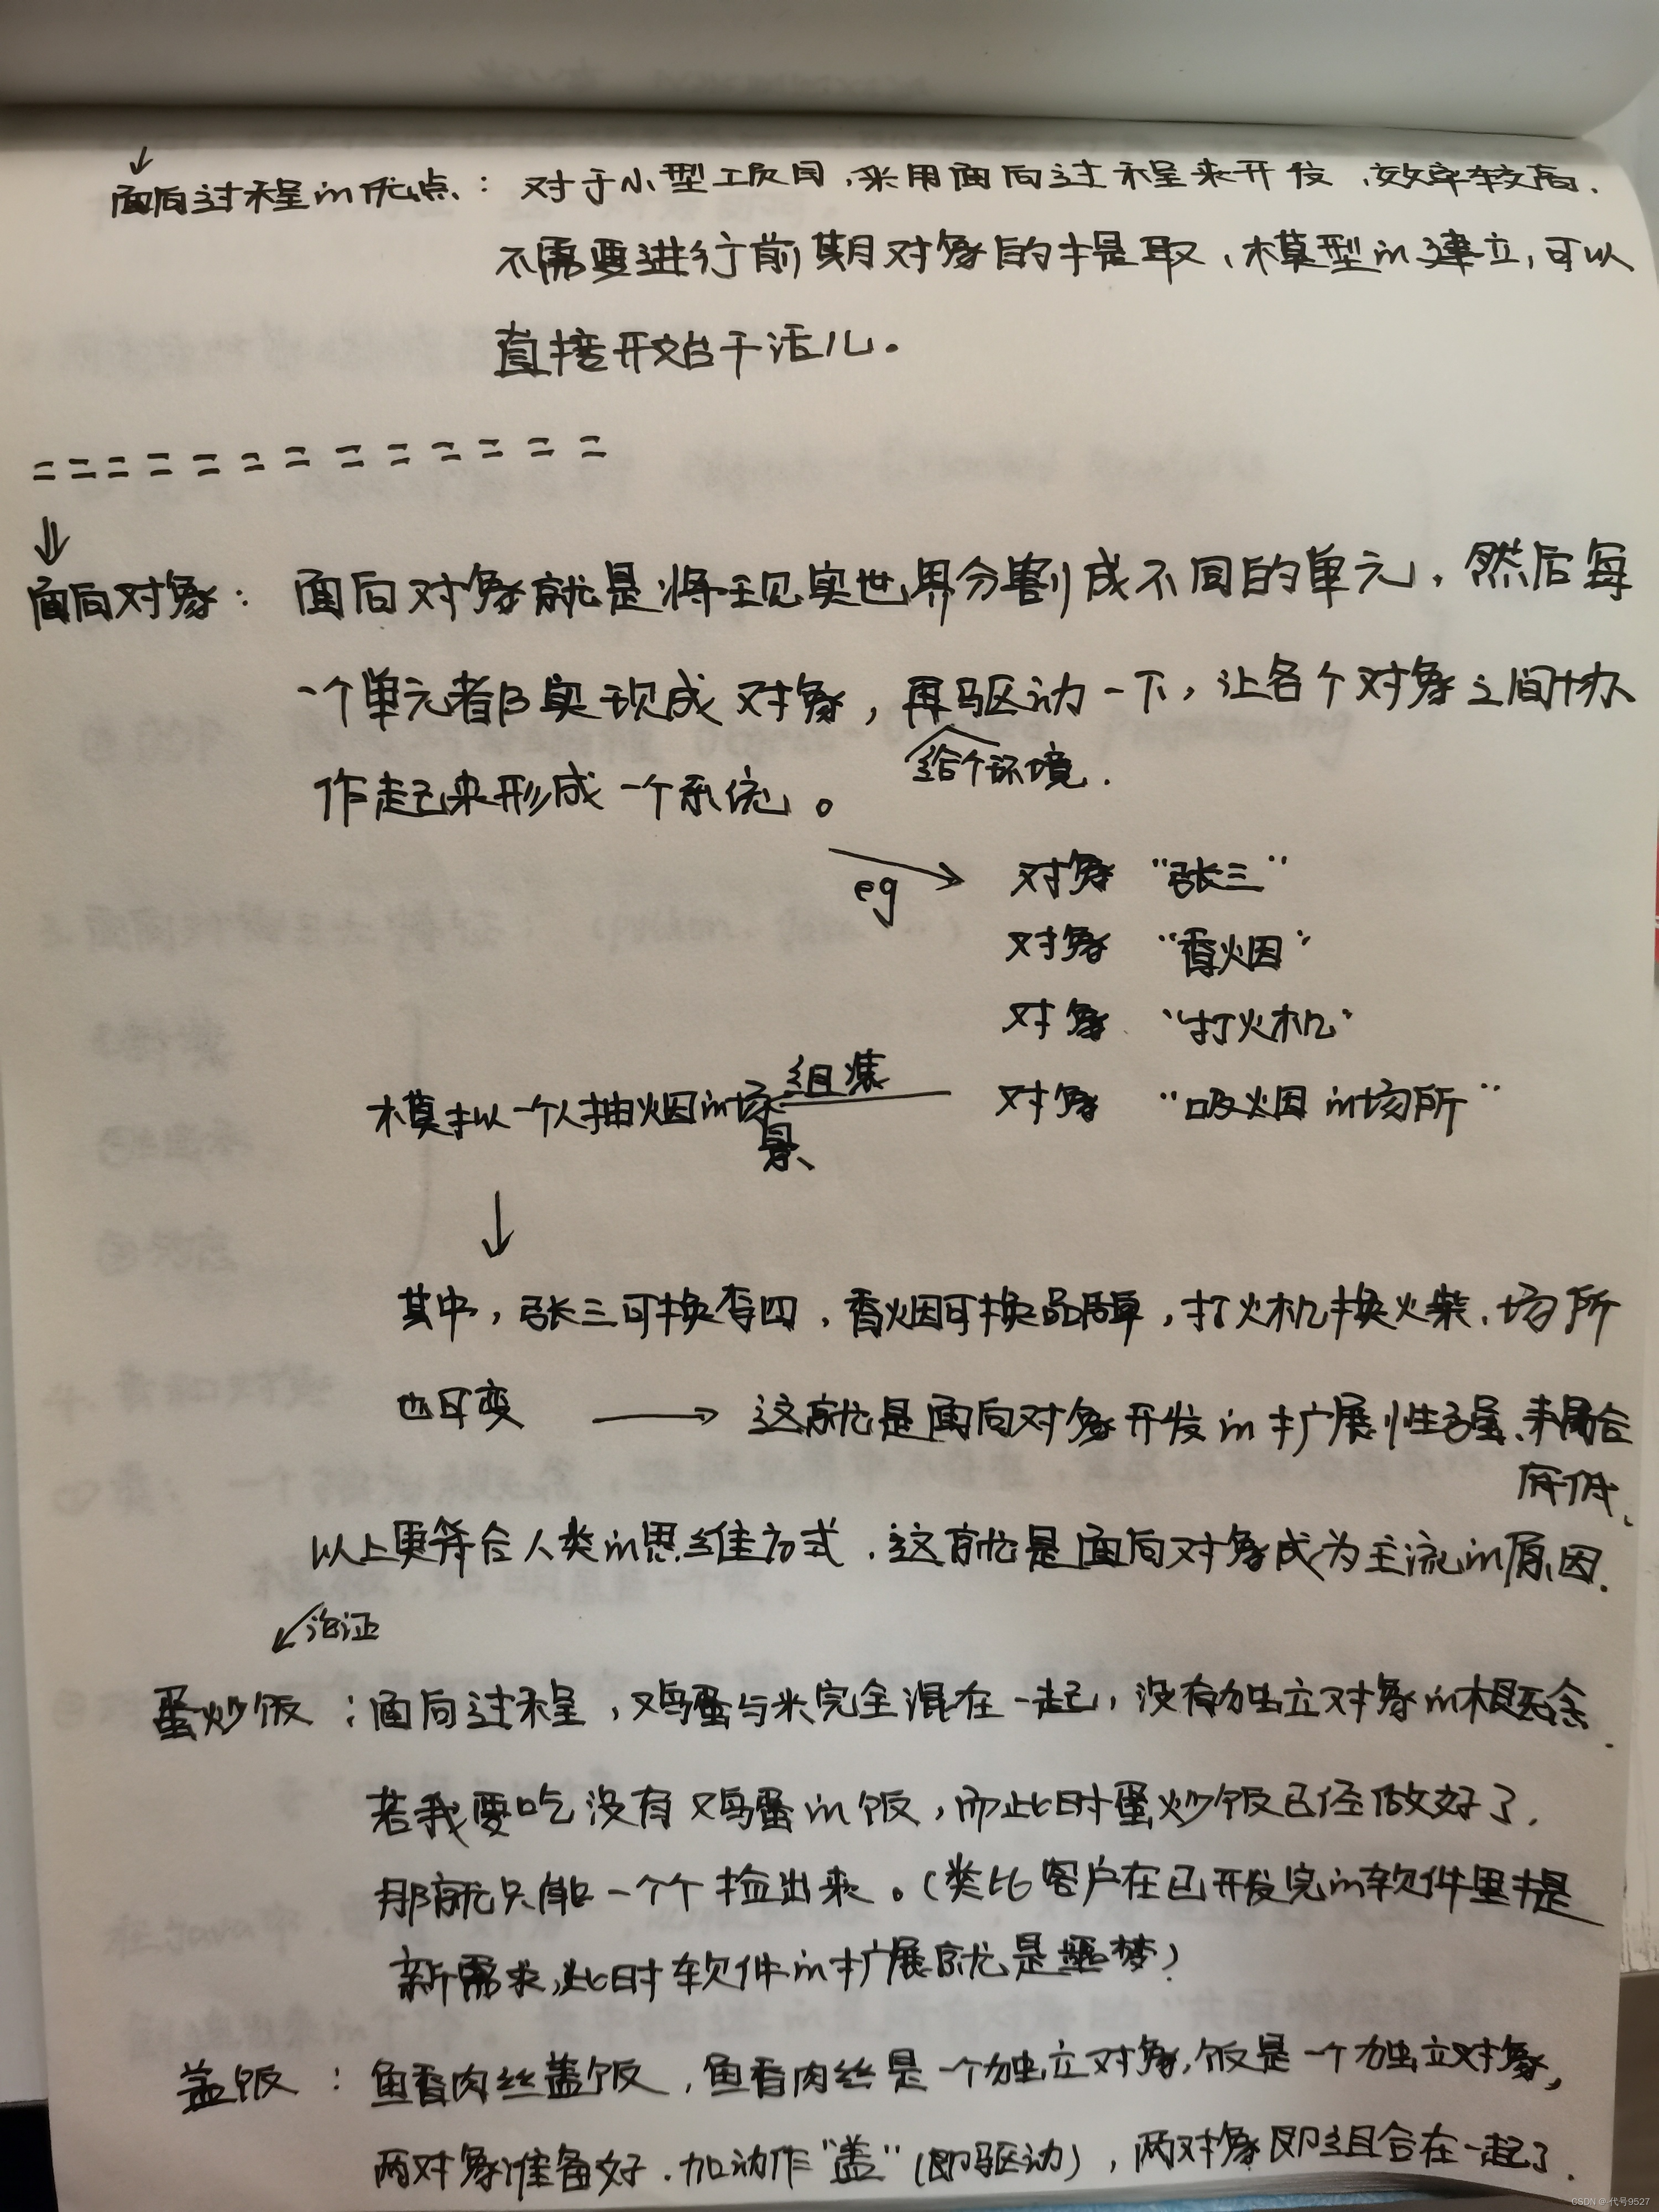 ↓
面向过程的优点：对于小型项目，采用面向过程来开发，效率较高.
不需要进行前期对象的提取，模型的建立，可以
直接开始干活儿。
= = = = = = = = = = = = =
⇓
面向对象：面向对象就是将现实世界分割成不同的单元，然后每
一个单元都实现成对象，再驱动一下，让各个对象之间协
给个环境.
作起来形成一个系统。
eg → 对象 "张三"
对象 "香烟"
对象 "打火机"
对象 "吸烟的场所"
组集
模拟一个人抽烟的场
景、
↓
其中，张三可换李四，香烟可换品牌，打火机换火柴、场所
也可变 → 这就是面向对象开发的扩展性强、耦合
度低、
以上更符合人类的思维方式，这就是面向对象成为主流的原因.
↙论证
蛋炒饭：面向过程，鸡蛋与米完全混在一起，没有独立对象的概念.
若我要吃没有鸡蛋的饭，而此时蛋炒饭已经做好了，
那就只能一个个捡出来。（类比客户在已开发完的软件里提
新需求，此时软件的扩展就是噩梦）
盖饭：鱼香肉丝盖饭，鱼香肉丝是一个独立对象，饭是一个独立对象，
两对象准备好，加动作"盖"（即驱动），两对象即组合在一起了.
CSDN @代号9527